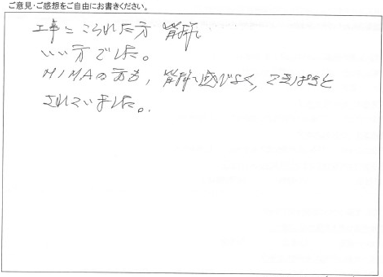 ご意見・ご感想をご自由にお書きください。
工事にこられた方 皆様
いい方でした。
NIMAの方も、皆様感じよく、てきぱきと
されていました。